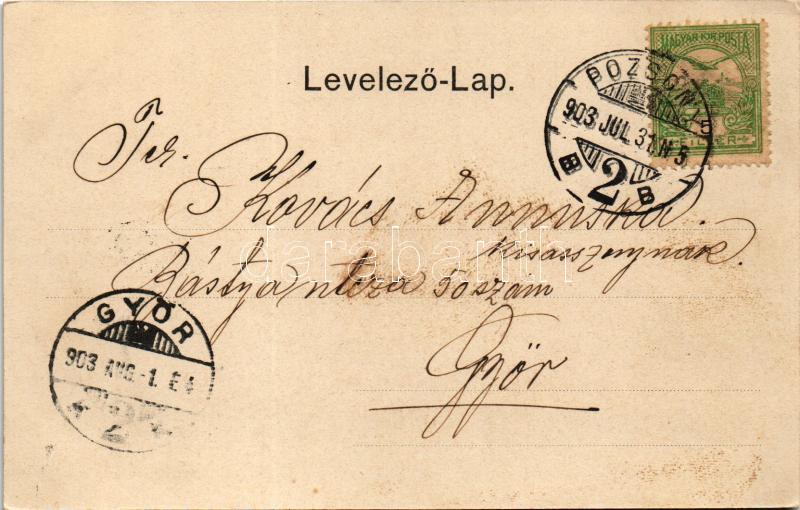 MAGYAR KIR. POSTA
FILLÉR
Levelező-Lap.
POZSONY
903 JUL 31. N 5
B 2 B
Kovács Annuska
kisasszonynak.
Bástya utcza 50 szám
Győr
GYŐR
903 AUG. -1.
darabanth